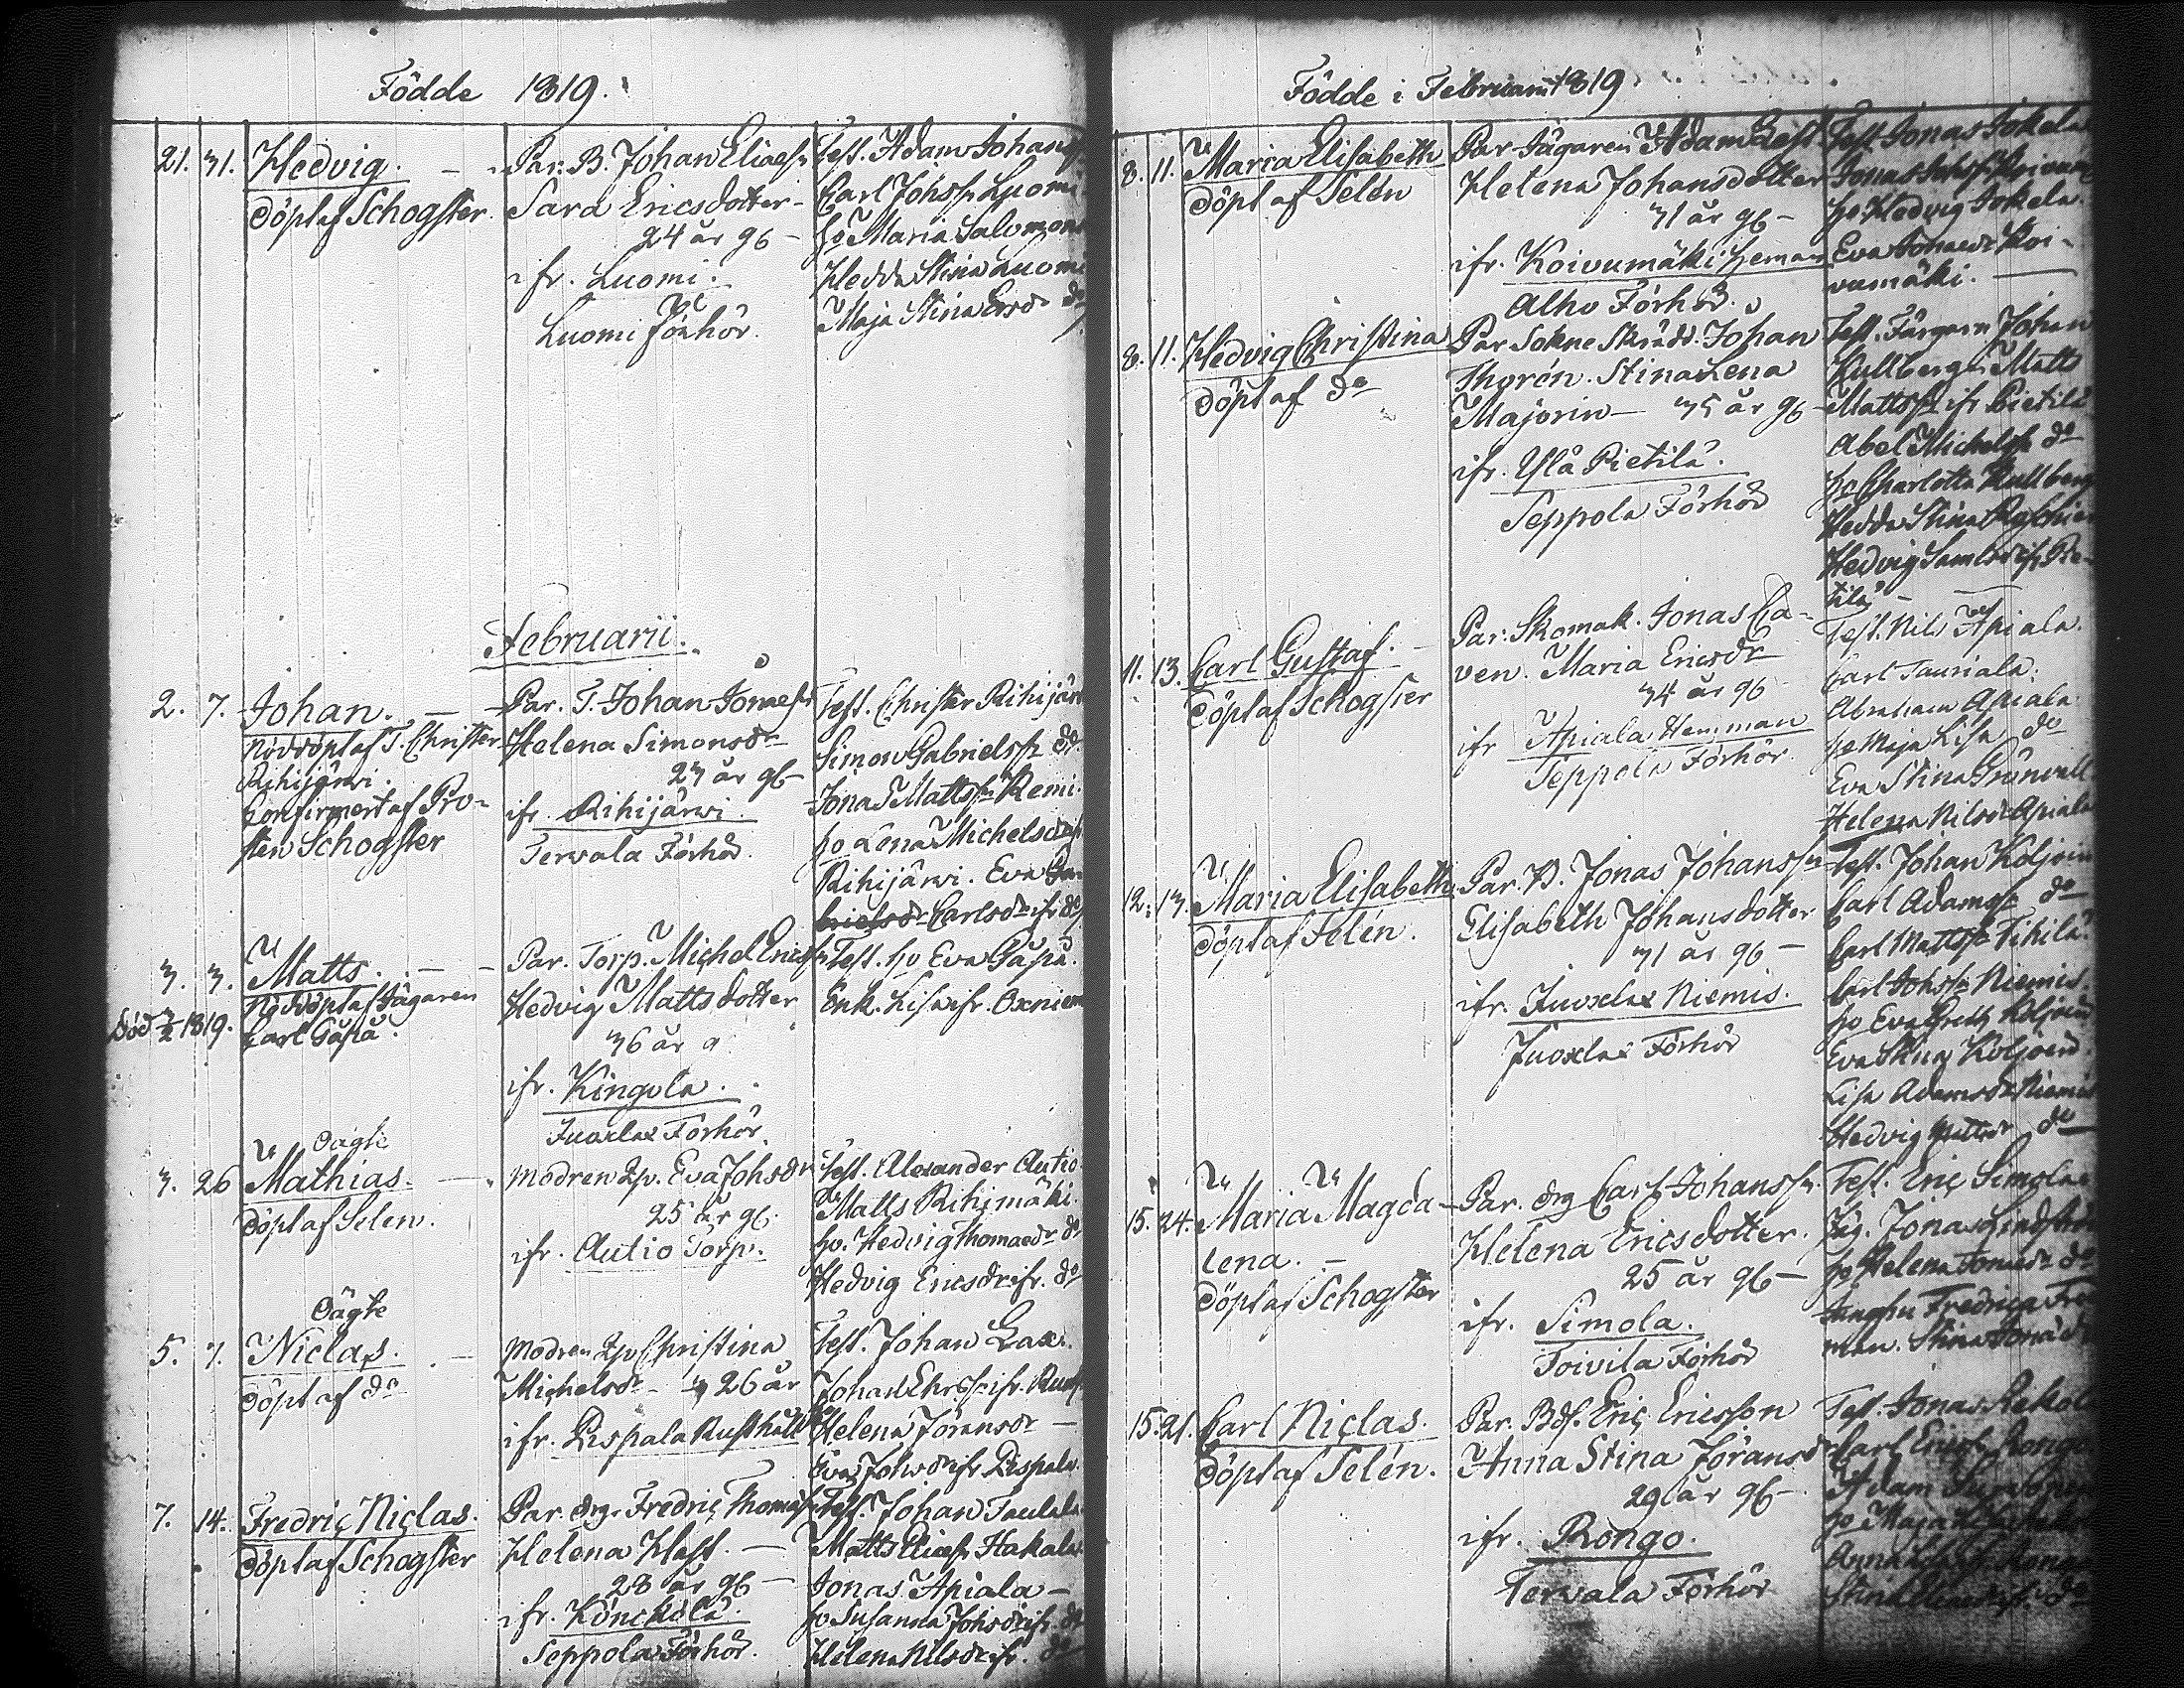 Födde 1819.
21. 31. Hedvig.
döpt af Schogster.
Par. B. Johan Eliaes.
Sara Ericsdotter
24 år g6
ifr. Luomi.
Luomi Förhör.
Test. Adam Johans
Carl Johss. Luomi
ho Maria Salomons
Hedda Stina Luomi
Maja Stina Ersdr do
Februarii.
2. 7. Johan.
Nöddöpt af T. Christer
Rihijärwi.
Confirmert af Pro-
sten Schogster
Par. T. Johan Jonaes.
Helena Simonsdr
23 år g6
ifr. Rihijärwi.
Terwala Förhör.
Test. Christer Rihijärw
Simon Gabrielss. do
Jonas Mattss. Remi.
ho Lena Michelsdr ifr
Rihijärwi. Eva
Carlsdr ifr do
3. 3. Matts.
Nöddöpt af Jägaren
Carl Gåpå.
död 3/2 1819.
Par. Torp. Michel Erics.
Hedvig Matts dotter
36 år
ifr. Kingola.
Juoxlax Förhör.
Test. ho Eva Gåpå.
Enk. Lisa ifr. Oxniem
Oägte
3. 26 Mathias.
döpt af Selen.
Modren Qp. Eva Johsdr
25 år g6.
ifr. Autio Torp.
Test. Alexander Autio
Matts Rihimäki.
ho. Hedvig Thomaedr do
Hedvig Ericsdr ifr. do
Oägte
5. 7. Niclas.
döpt af do
Modren Qp Christina
Michelsdr 26 år
ifr. Pispala Rusthåll
Test. Johan Lax.
Johan Ehrss. ifr.
Helena Jöransdr
Eva Johsdr ifr Pispala.
7. 14. Fredric Niclas.
döpt af Schogster
Par. drg. Fredric Thomass.
Helena Hast.
28 år g6
ifr. Könckölä.
Seppola Förhör.
Test. Johan Taulala
Matts Hakala
Jonas Apiala
ho Susanna Johsdr ifr. do
Helena Nilsdr ifr. do
Födde i Februarii 1819.
8. 11. Maria Elisabeth
döpt af Selén
Par Jägaren Adam
Helena Johansdotter
31 år g6
ifr. Koivumäki Heman
Alho Förhör.
Test Jonas Jokela
Jonas Johss. Koivum
ho. Hedvig Jokela.
Eva Jonaedr Koi-
vumäki.
8. 11. Hedvig Christina
döpt af do
Par Sokne Skrädd. Johan
Thorén. Stina Lena
Majorin 35 år g6
ifr. Ylä Pietilä.
Seppola Förhör
Test. Färgaren Johan
Kullberg. Matts
Mattss. ifr Pietilä
Abel Michelss. do
ho Charlotta Kullberg
Hedda Stina
Hedvig Samlsdr ifr. Pie-
tilä
11. 13. Carl Gustaf.
döpt af Schogster
Par. Skomak. Jonas Ca-
ven. Maria Ericsdr
34 år g6
ifr Apiala Hemman
Seppola Förhör.
Test. Nils Apiala.
Carl Tauriala.
Abraham Apiala
ho Maja Lisa do
Eva Stina Grönvall
Helena Nilsdr Apiala
12. 13. Maria Elisabeth
döpt af Selén.
Par. B. Jonas Johanss.
Elisabeth Johansdotter
31 år g6
ifr. Juoxlax Niemis.
Juoxlax Förhör
Test. Johan Koljoin
Carl Adamss. do
Carl Mattss. Tihilä
Carl Johss. Niemis.
ho Eva Greta Koljoin
Eva Stina Koljoin
Lisa Adamsdr Niemis
Hedvig Mattsdr do
15. 24. Maria Magda-
lena.
döpt af Schogster
Par. drg Carl Johanss.
Helena Ericsdotter.
25 år g6
ifr. Simola.
Toivila Förhör
Test. Eric Simola
Jäg. Jonas Lindström
ho Helena Jonaedr do
Jungfru Fredrica
man. Stina
15. 21. Carl Niclas.
döpt af Selén.
Par. Bds. Eric Ericsson
Anna Stina Jöransdr
29 år g6
ifr. Rongo.
Terwala Förhör
Test. Jonas Rekola
Carl Ericss. Rongo
Adam
ho Maja
Anna
Stina do